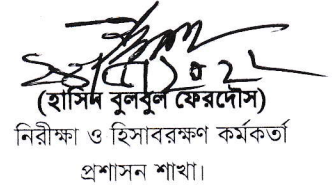 (হাসিদ বুলবুল ফেরদৌস)
নিরীক্ষা ও হিসাবরক্ষণ কর্মকর্তা
প্রশাসন শাখা।